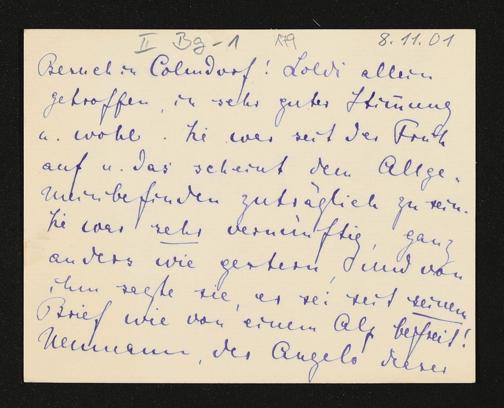 II Bg-1 179 8.11.01
Besuch in Colmdorf! Loldi allein
getroffen, in sehr guter Stimmung
u. wohl. Sie war seit der Früh
auf u. das scheint dem Allge-
meinbefinden zuträglich zu sein.
Sie war sehr vernünftig, ganz
anders wie gestern, und von
ihm sagte sie, er sei seit seinem
Brief wie von einem Alp befreit!
Neumann, der Angelo dieser